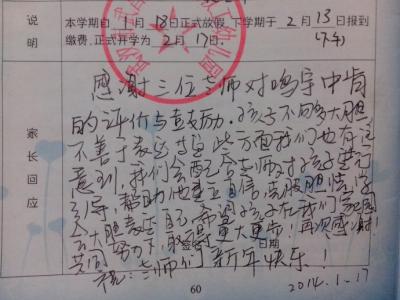 说明
本学期自 1 月 18 日正式放假，下学期于 2 月 13 日报到
缴费，正式开学为 2 月 17 日。
幼儿园
家长回应
感谢三位老师对鸣宇中肯
的评价与鼓励。孩子不同多大胆，
不善于表达等些方面我们也有注
意到，我们会配合老师对孩子进行
引导，帮助他建立自信，克服胆怯，学
会大胆表达自己。希望孩子在我们
共同努力下，取得更大更步！再次感谢！
日期
祝：老师们新年快乐！
2014.1.17
60